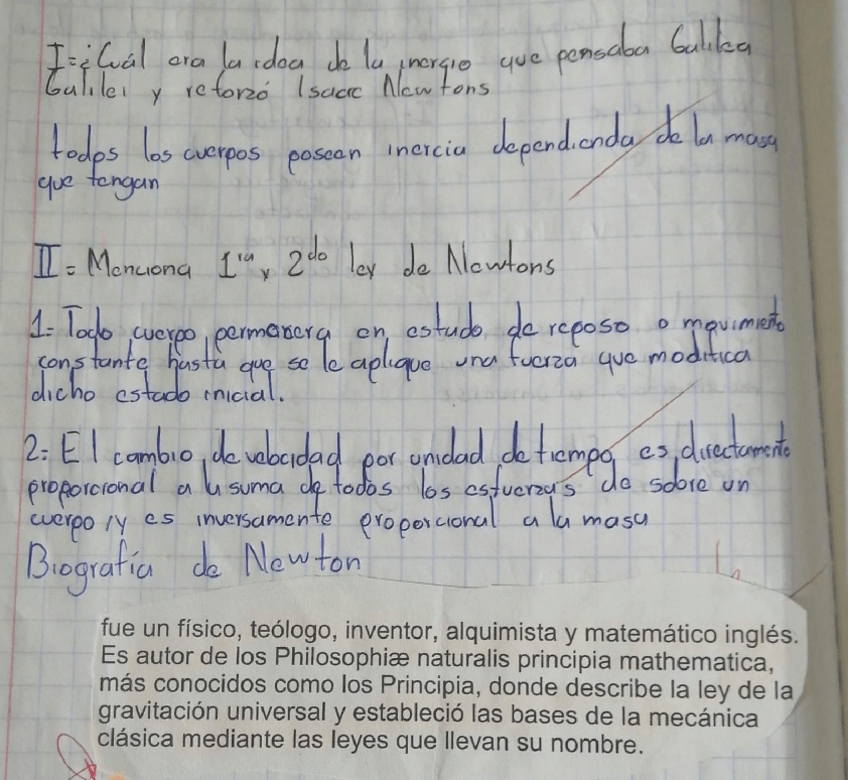 I=¿Cuál era la idea de la inercia que pensaba Galilea
Galilei y reforzó Isaac Newtons
todos los cuerpos poseen inercia dependienda de la masa
que tengan
II= Menciona 1ra y 2do ley de Newtons
1= Todo cuerpo permanecera en estado de reposo o movimiento
constante hasta que se le aplique una fuerza que modifica
dicho estado inicial.
2= El cambio de velocidad por unidad de tiempo es directamente
proporcional a la suma de todos los esfuerzas de sobre un
cuerpo y es inversamente proporcional a la masa
Biografía de Newton
fue un físico, teólogo, inventor, alquimista y matemático inglés.
Es autor de los Philosophiæ naturalis principia mathematica,
más conocidos como los Principia, donde describe la ley de la
gravitación universal y estableció las bases de la mecánica
clásica mediante las leyes que llevan su nombre.